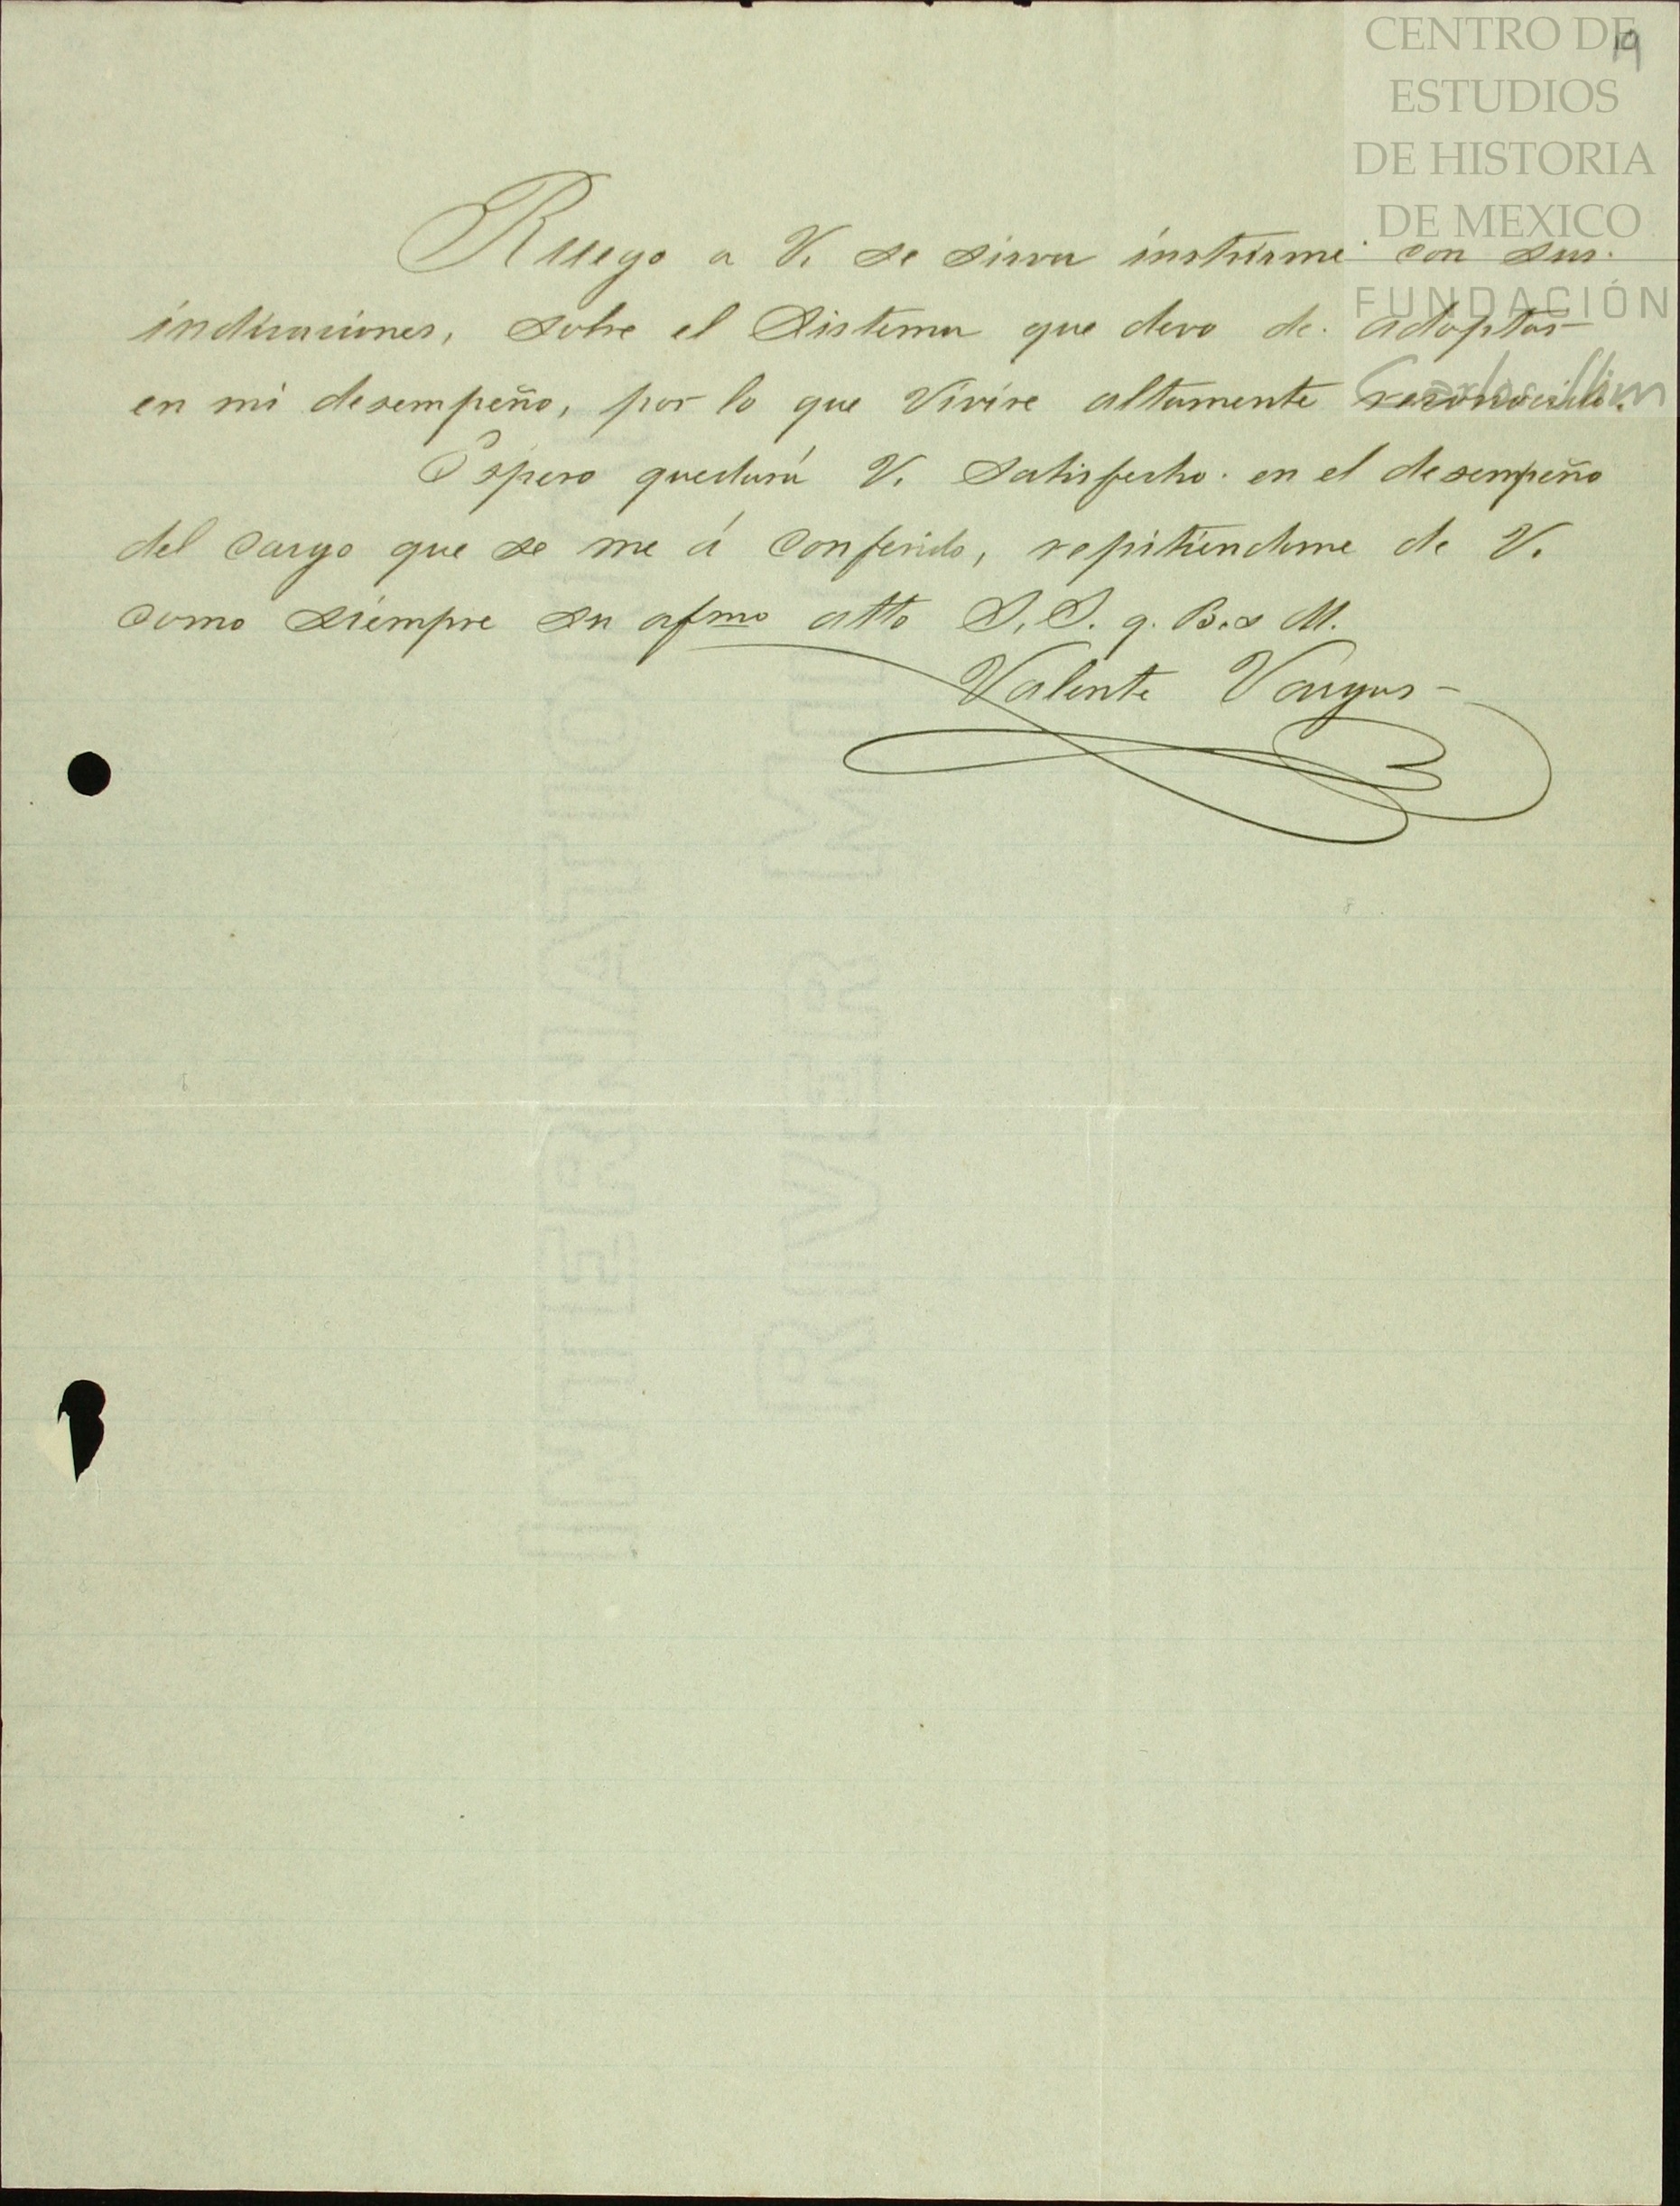 CENTRO DE
ESTUDIOS
DE HISTORIA
DE MEXICO
FUNDACIÓN
Carlos Slim
19
Ruego a V. se sirva instrirme con sus
indicaciones, sobre el Sistema que devo de adoptar
en mi desempeño, por lo que Vivire altamente reconocido.
Espero quedará V. Satisfecho en el desempeño
del Cargo que se me á Conferido, repitiendome de V.
como siempre su afmo atto S. S. q. B. s M.
Valente Vargas
INTERNATIONAL
RIVER MILL